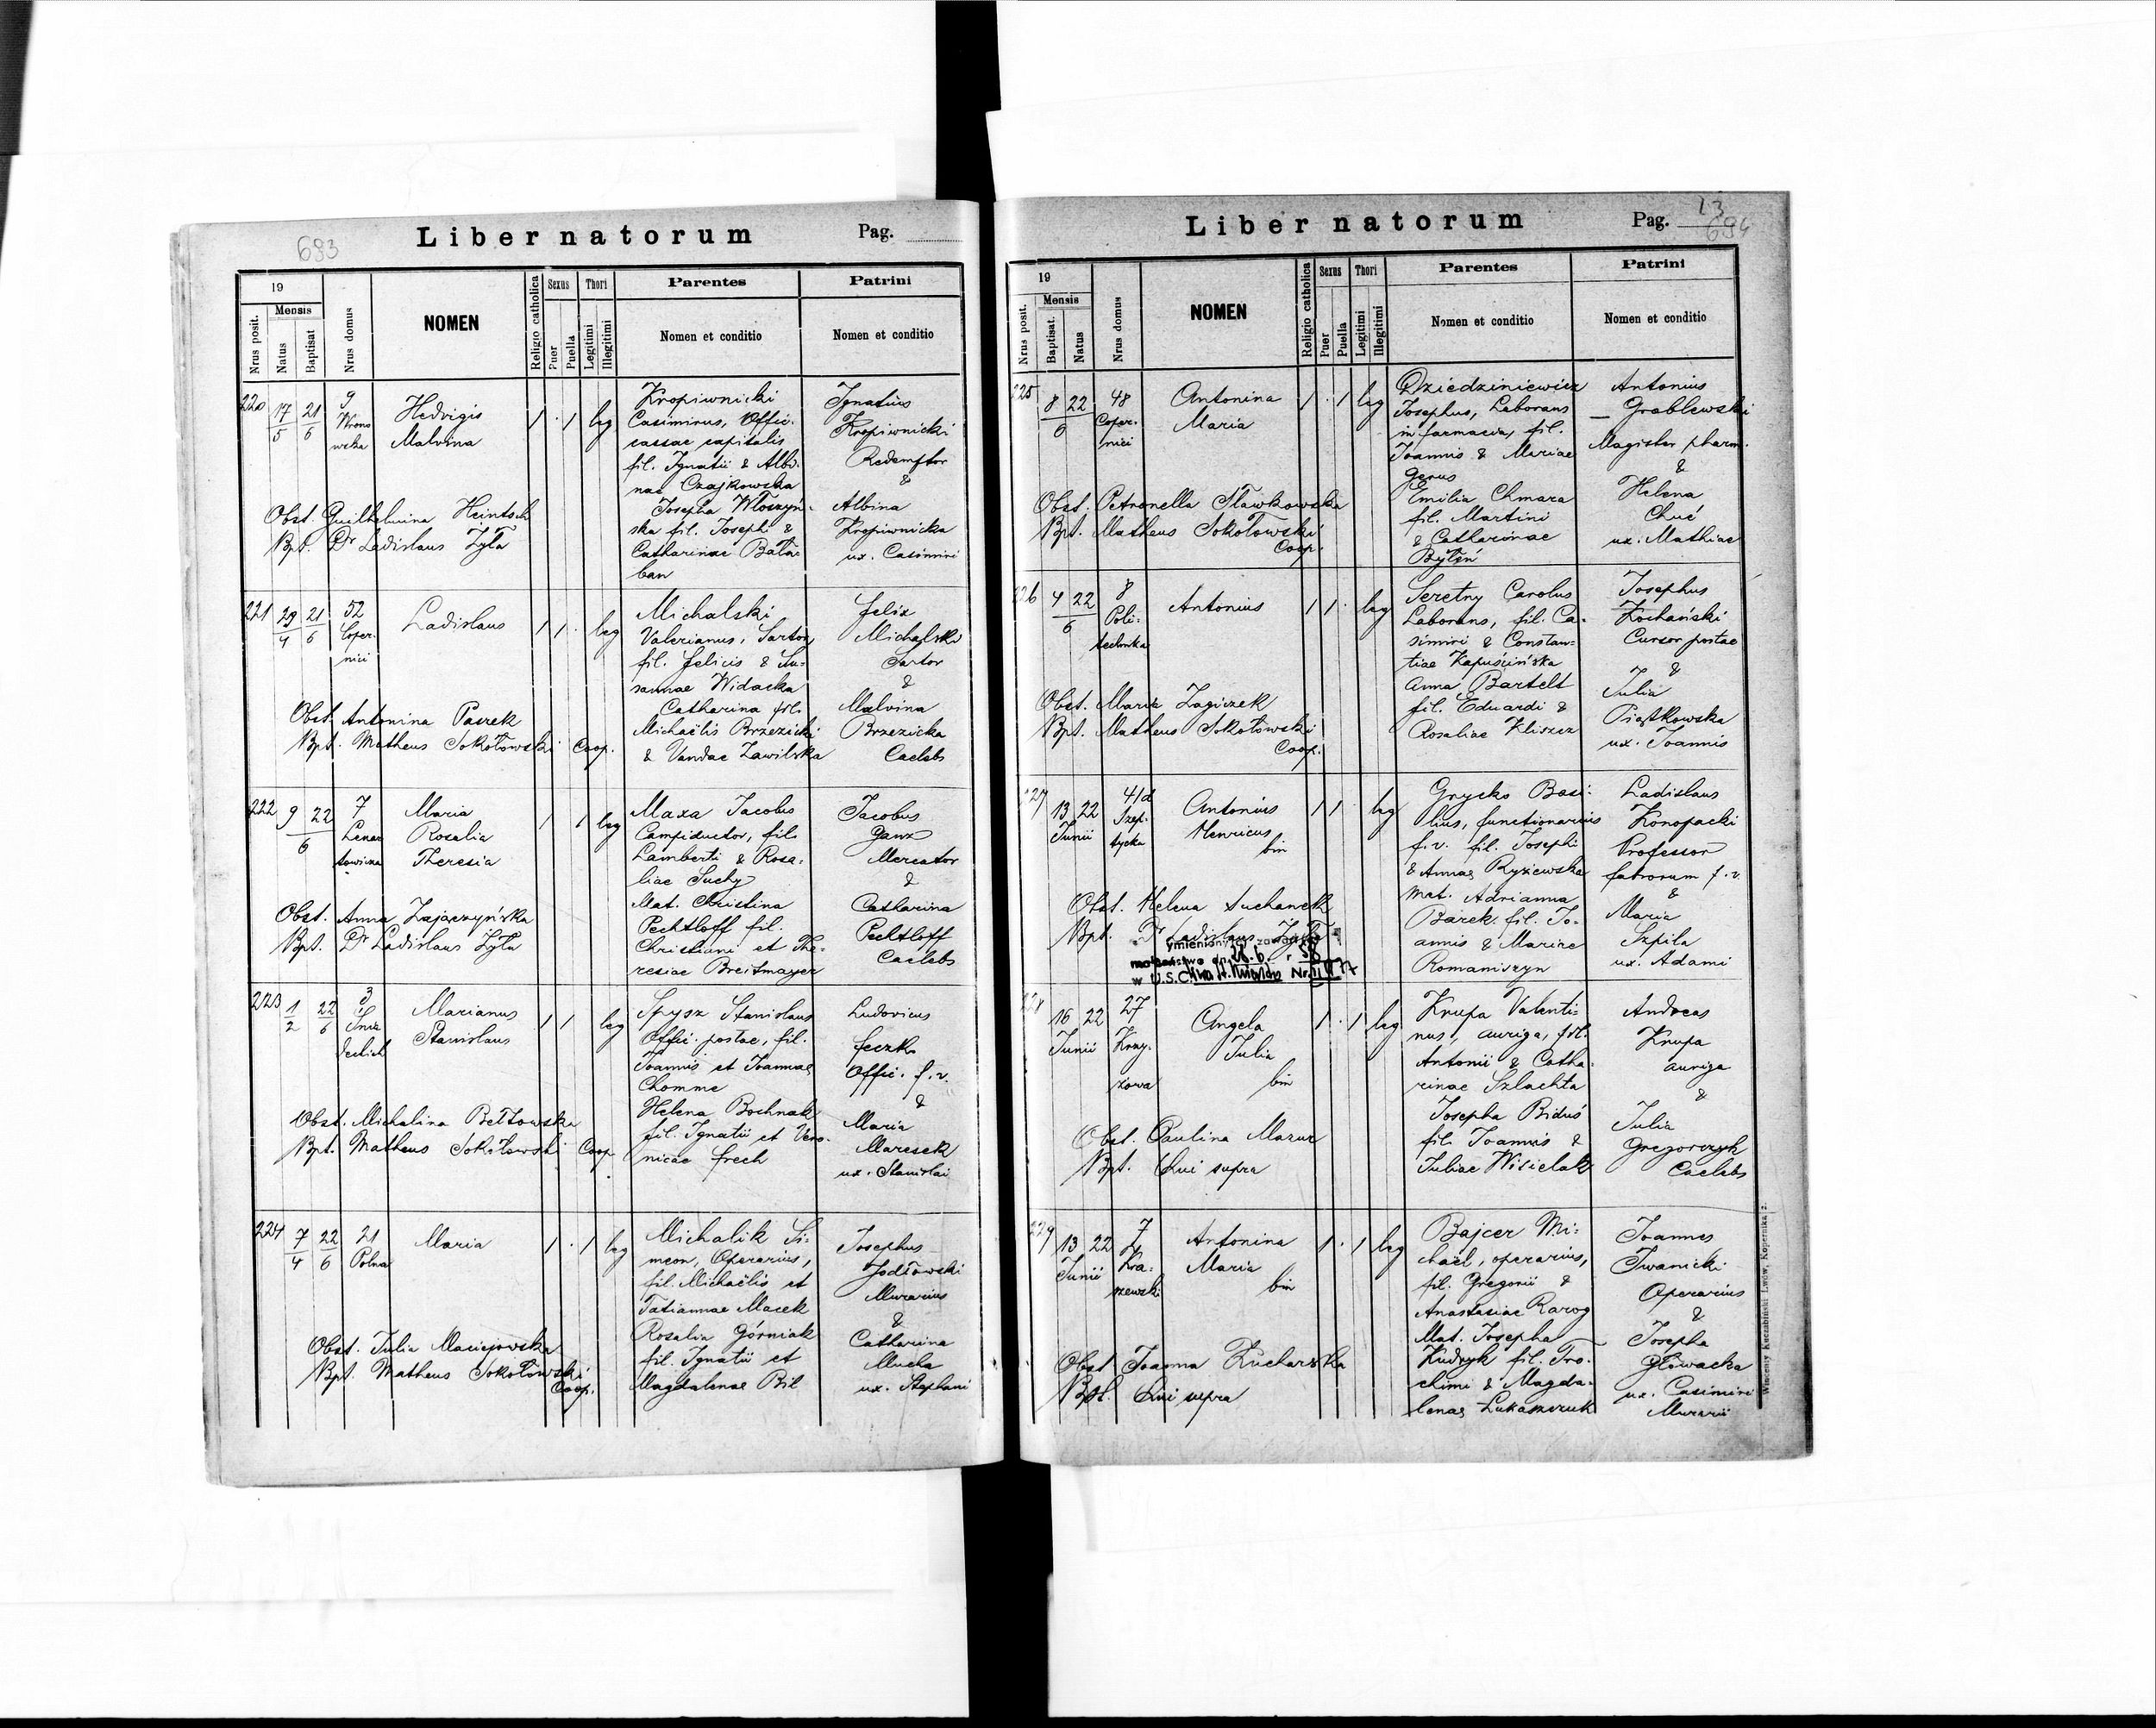 693
Liber natorum Pag.
19
Mensis
Nrus posit.
Natus
Baptisat
Nrus domus
NOMEN
Religio catholica
Sexus
Puer
Puella
Thori
Legitimi
Illegitimi
Parentes
Nomen et conditio
Patrini
Nomen et conditio
220 17/5 21/6 9 Hedvigis 1 · 1 leg
Malvina
Kropiwnicki
Casimirus, Offic.
cassae capitalis
fil. Ignatii & Albi-
nae Czajkowska
Josepha Włoszyń-
ska fil. Josephi &
Catharinae Bała-
ban
Ignatius
Kropiwnicki
Redemptor
&
Albina
Kropiwnicka
ux. Casimiri
Obst. Guilhelmina Heintsch
Bpt. Dr Ladislaus Żyła
221 29/4 21/6 52 Ladislaus 1 1 · leg
Coper-
nici
Michalski
Valerianus, Sartor
fil. Felicis & Su-
sannae Widacka
Catharina fil.
Michaëlis Brzezicki
& Vandae Zawilska
Felix
Michalski
Sartor
&
Malvina
Brzezicka
Caelebs
Obst. Antonina Paszek
Bpt. Matheus Sokołowski Coop.
222 9 22 7 Maria 1 1 leg
6
Rosalia
Theresia
Maxa Jacobus
Campiductor, fil.
Lamberti & Rosa-
liae Suchy
Mat. Christina
Pechtloff fil.
Christiani et The-
resiae Breitmayer
Jacobus
Ganz
Mercator
&
Catharina
Pechtloff
Caelebs
Obst. Anna Zajączyńska
Bpt. Dr Ladislaus Żyła
223 1/2 22/6 3 Marianus 1 1 leg
Śnia
deckich
Stanislaus
Spysz Stanislaus
Offic. postae, fil.
Joannis et Joannae
Chomme
Helena Bochnak
fil. Ignatii et Vero-
nicae Frech
Ludovicus
Feczko
Offic. f. v.
&
Maria
Maresek
ux. Stanislai
Obst. Michalina Bełtowska
Bpt. Matheus Sokołowski Coop.
224 7/4 22/6 21 Maria 1 · 1 leg
Polna
Michalik Si-
meon, Operarius,
fil. Michaëlis et
Tatiannae Macek
Rosalia Górniak
fil. Ignatii et
Magdalenae Bil
Josephus
Jodłowski
Murarius
&
Catharina
Mucha
ux. Stephani
Obst. Julia Maciejowska
Bpt. Matheus Sokołowski
Coop.
Liber natorum Pag. 694
19
Mensis
Nrus posit.
Baptisat.
Natus
Nrus domus
NOMEN
Religio catholica
Sexus
Puer
Puella
Thori
Legitimi
Illegitimi
Parentes
Nomen et conditio
Patrini
Nomen et conditio
225 8 22 48 Antonina 1 · 1 leg
6
Coper-
nici
Maria
Dziedziniewicz
Josephus, Laborans
in farmacia, fil.
Joannis & Mariae
Gerus
Emilia Chmara
fil. Martini
& Catharinae
Byteń
Antonius
Grablewski
Magister pharm.
&
Helena
Chuć
ux. Mathiae
Obst. Petronella Sławkowska
Bpt. Matheus Sokołowski
Coop.
226 4 22 8 Antonius 1 1 · leg
6
Poli-
technika
Seretny Carolus
Laborans, fil. Ca-
simiri & Constan-
tiae Kapuścińska
Anna Bartelt
fil. Eduardi &
Rosaliae Kliszcz
Josephus
Kochański
Cursor postae
&
Julia
Piątkowska
ux. Joannis
Obst. Maria Zagiczek
Bpt. Matheus Sokołowski
Coop.
227 13 22 41d Antonius 1 1 leg
Junii
Szep-
tycka
Henricus
bin
Grycko Basi-
lius, functionarius
f. v. fil. Josephi
& Annae Ryżewska
Mat. Adrianna
Barek fil. Jo-
annis & Mariae
Romaniszyn
Ladislaus
Konopacki
Professor
fabrorum f. v.
&
Maria
Szpila
ux. Adami
Obst. Helena Suchanek
Bpt. Dr Ladislaus Żyła
ymieniony zawarł
małżeństwo dn. 28.6. 58
w U.S.C.
228 16 22 27 Angela 1 · 1 leg
Junii
Krzy-
żowa
Julia
bin
Krupa Valenti-
nus, auriga, fil.
Antonii & Catha-
rinae Szlachta
Josepha Biduś
fil. Joannis &
Juliae Wisielak
Andreas
Krupa
auriga
&
Julia
Gregorczyk
Caelebs
Obst. Paulina Mazur
Bpt. Qui supra
229 13 22 7 Antonina 1 · 1 leg
Junii
Kra-
szewski
Maria
bin
Bajcer Mi-
chaël, operarius,
fil. Gregorii &
Anastasiae Rarog
Mat. Josepha
Kudryk fil. Tro-
chimi & Magda-
lenae Łukaszczuk
Joannes
Iwanicki
Operarius
&
Josepha
Głowacka
ux. Casimiri
Murarii
Obst. Joanna Kucharska
Bpt. Qui supra
Wincenty Kuczabiński Lwów, Kopernika 2.